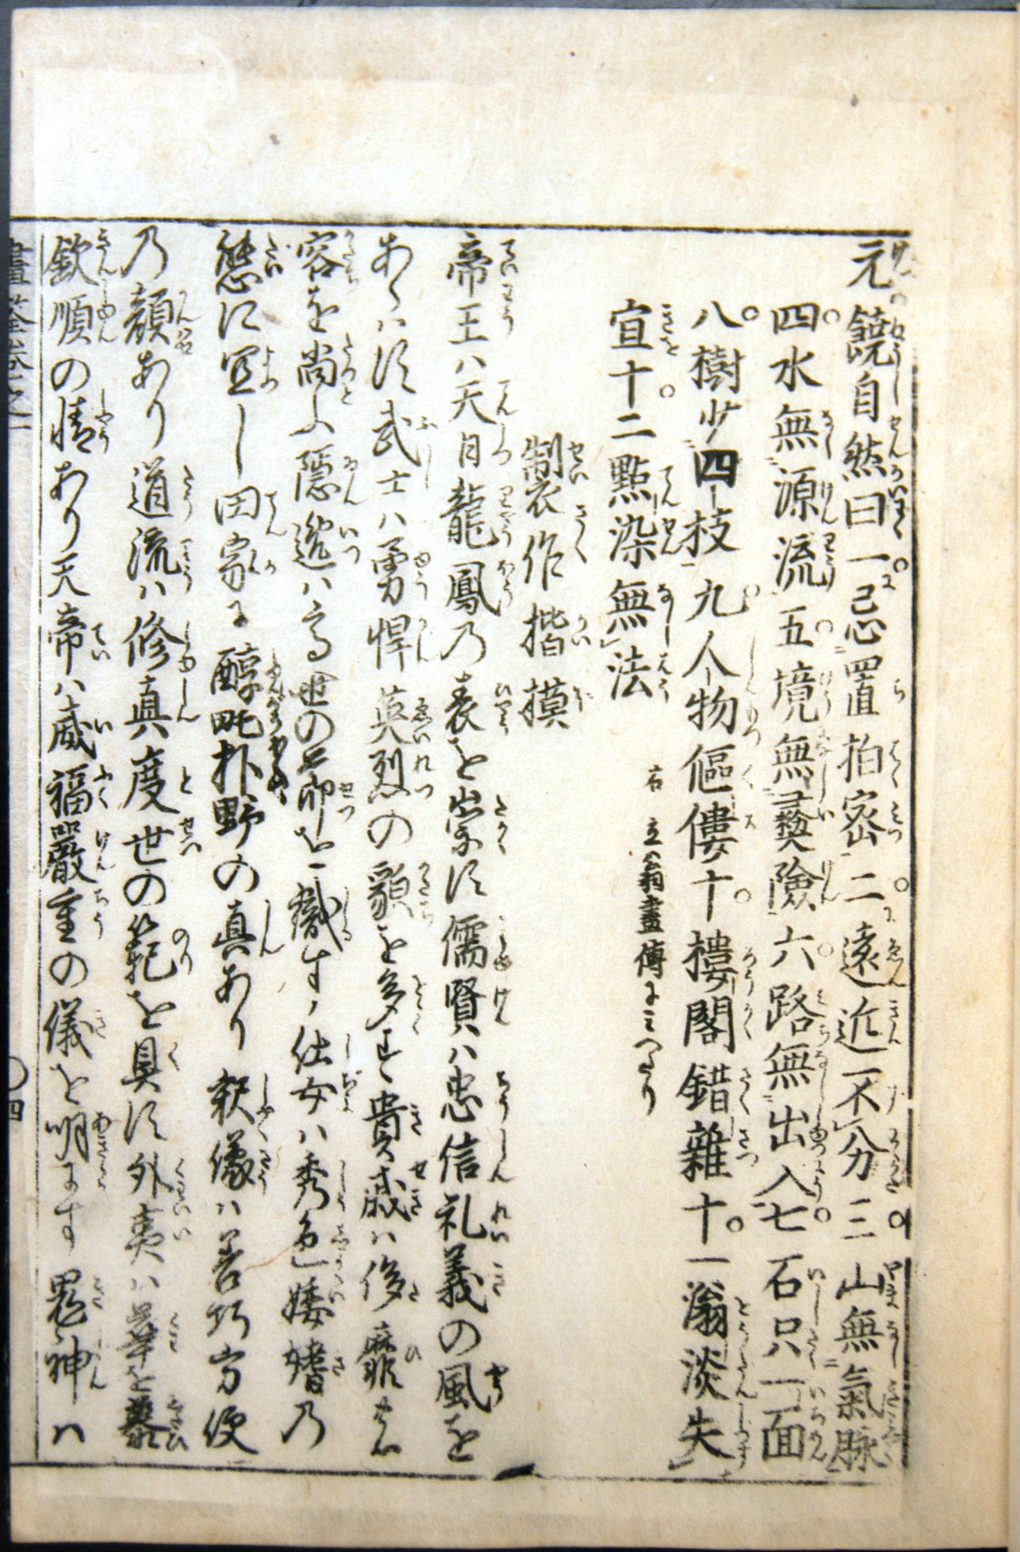 元饒自然曰一忌置拍密二遠近不分三山無氣脉
四水無源流五境無彛險六路無出入七石只一面
八樹少四枝九人物傴僂十樓閣錯雜十一滃淡失
宜十二點染無法
右立翁畫傳にみへたり
制衣作揩摸
帝王ハ天日龍鳳乃表を崇す儒賢ハ忠信礼義の風を
あらハす武士ハ勇悍英烈の貌を多す貴戚ハ侈靡
容を尚ふ隠逸ハ高世の節を識す仕女ハ秀色婑婧乃
態に宜し田家は醇甿朴野の真あり釈像ハ善巧方便
乃顔あり道流ハ修真度世の範を具す外夷ハ華を慕
欽順の情あり天帝ハ威福嚴重の儀を明にす鬼神ハ
畫筌卷之一
四